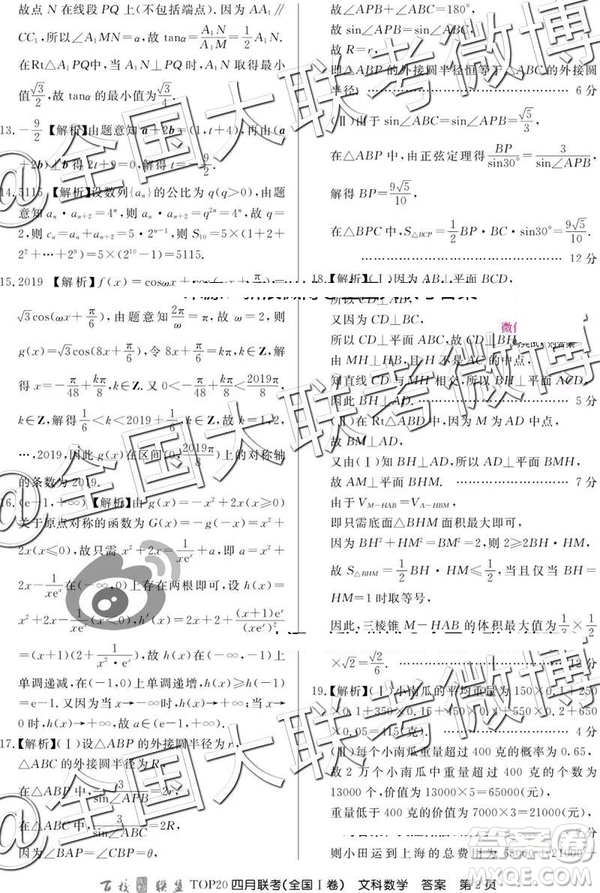 故点 N 在线段 PQ 上(不包括端点). 因为 AA₁∥
CC₁,所以∠A₁MN=α,故 tanα=A₁N/A₁M=A₁N/1.
在Rt△A₁PQ中,当 A₁N⊥PQ 时,A₁N 取得最小
值√3/2,故 tanα 的最小值为√3/2.
13. -9/2 【解析】由题意知 a+2b=(1,t+4),再由(a
+2b)⊥b 得 2t+9=0,解得
14. 5115 【解析】设数列{aₙ}的公比为 q(q>0),由题
意知 aₙ·aₙ₊₂=4ⁿ,则 aₙ·aₙ₊₂=q²ⁿ=4ⁿ,故 q=
2,则 cₙ=aₙ+aₙ₊₂=5·2ⁿ⁻¹,则 S₁₀=5×(1+2+
2²+…+2⁹)=5×(2¹⁰-1)=5115.
15. 2019 【解析】f(x)=cosωx+
√3cos(ωx+π/6),由题意知2π/ω=π,故 ω=2,则
g(x)=√3cos(8x+π/6),令 8x+π/6=kπ,k∈Z,解
得 x=-π/48+kπ/8,k∈Z,令 0<-π/48+kπ/8<2019π/8,
k∈Z,解得1/6<k<2019+1/6,k∈Z,故 k=1,2,
…,2019,因此 g(x)在区间(0,2019π/8)上的对称轴
的条数为 2019.
16. (e-1,+∞) 【解析】由 g(x)=-x²+2x(x≥0)
关于原点对称的函数为 G(x)=x²+
2x(x<0),故只需 x²+2x=
2x-1/xeˣ在(-∞,0)上存在两根即可,设 h(x)=
x²+2x-1/xeˣ(x<0),h′(x)=2(x+1)+(x+1)eˣ/(xeˣ)²
=(x+1)(2+1/x²eˣ),故 h(x)在(-∞,-1)上
单调递减,在(-1,0)上单调递增,h(x)≥h(-1)=
e-1.又因为当 x→-∞时,h(x)→+∞,当 x→
0时,h(x)→+∞,故 a>e-1.
17. 【解析】(Ⅰ)设△ABP 的外接圆半径为 r,
△ABC 的外接圆半径为 R,
在△ABP 中,3/sin∠APB=2r,
在△ABC 中,3/sin∠ABC... =2R,
因为∠BAP=∠ABC,
故∠APB+∠ABC=180°,
故 sin∠APB=sin∠ABC,
故 R=r,
即△ABP 的外接圆半径恒等于△ABC 的外接圆
半径. 6分
(Ⅱ)由于 sin∠ABC=sin∠APB=√5/3,
在△ABP 中,由正弦定理得BP/sin30°=3/sin∠APB,
解得 BP=9√5/10,
在△BPC 中,S△BCP=1/2BP·BC·sin30°=9√5/10.
12分
18. 【解析】(Ⅰ)因为 AB⊥平面 BCD,
所以 CD⊥AB,
又因为 CD⊥BC,
所以 CD⊥平面 ABC,故 CD⊥BH,
由 MH⊥HB,且 H 不是 AC 的中点,
知直线 CD 与 MH 相交,所以 BH⊥平面 ACD,
因此 BH⊥AD. 5分
(Ⅱ)在 Rt△ABD 中,因为 M 为 AD 中点,
故 BM⊥AD,
又由(Ⅰ)知 BH⊥AD,故 AD⊥平面 BMH,
故 AM⊥平面 BMH. 7分
由于 V_{M-HAB}=V_{A-HBM},
即只需底面△BHM 面积最大即可,
因为 BH²+HM²=BM²=2,则 2≥2BH·HM,
故 S△BHM=1/2BH·HM≤1/2,当且仅当 BH=HM
=1 时取等号,
因此,三棱锥 M-HAB 的体积最大值为1/3×1/2
×√2=√2/6. 12分
19. 【解析】(Ⅰ)小南瓜的平均重量为 150×0.1+250
×0.1+350×0.15+450×0.4+550×0.2+650
×0.05=415(克). 4分
(Ⅱ)每个小南瓜重量超过 400 克的概率为 0.65,
故 2 万个小南瓜中重量超过 400 克的个数为
13000 个,价值为 13000×5=65000(元),
重量低于 400 克的价值为 7000×3=21000(元),
8分
则小田运到上海总价值为 65000+21000
百校联盟 TOP20 四月联考(全国Ⅰ卷) 文科数学 答案 第2页
@全国大联考微博
@全国大联考微博